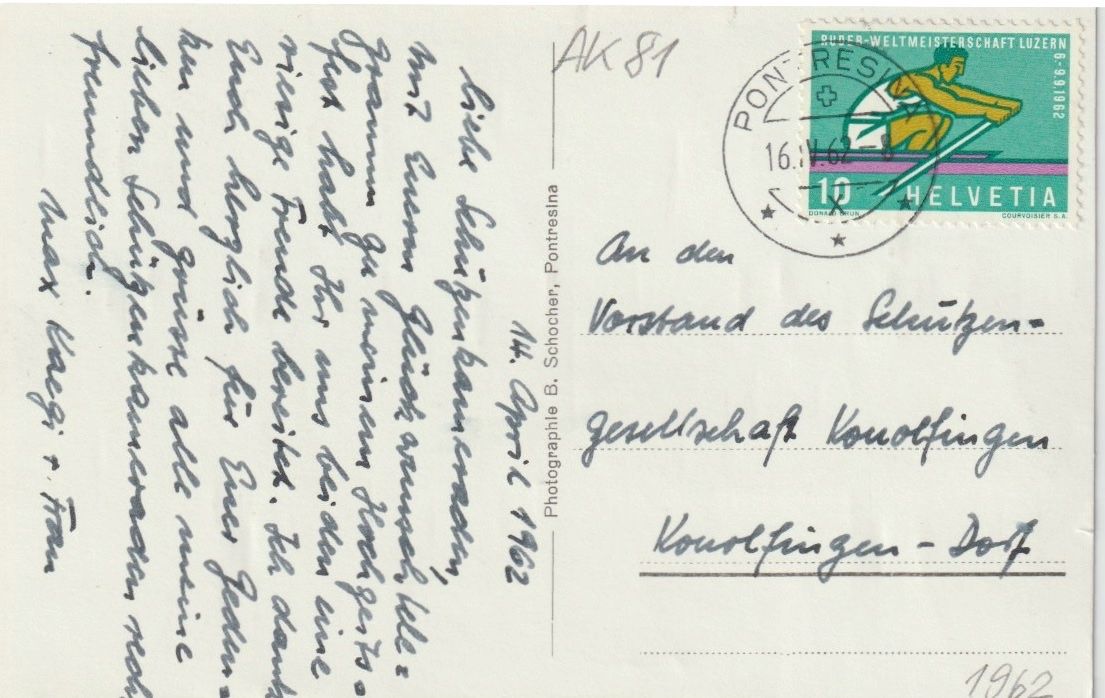 14. April 1962
Liebe Schützenkameraden,
mit Euerm Glückwunsch tele=
gramm zu meinem Hochzeits=
fest habt Ihr uns beiden eine
riesige Freude bereitet. Ich dank
Euch herzlich für Euer Geden=
ken und grüsse alle meine
lieben Schützenkameraden rech
freundlich.
Max Kaegi + Frau
Photographie B. Schocher, Pontresina
AK 81
RUDER-WELTMEISTERSCHAFT LUZERN
6-9.9.1962
10 HELVETIA
DONALD BRUN COURVOISIER S.A.
PONTRESINA
16.IV.62-8
An den
Vorstand des Schützen=
gesellschaft Konolfingen
Konolfingen - Dorf
1962